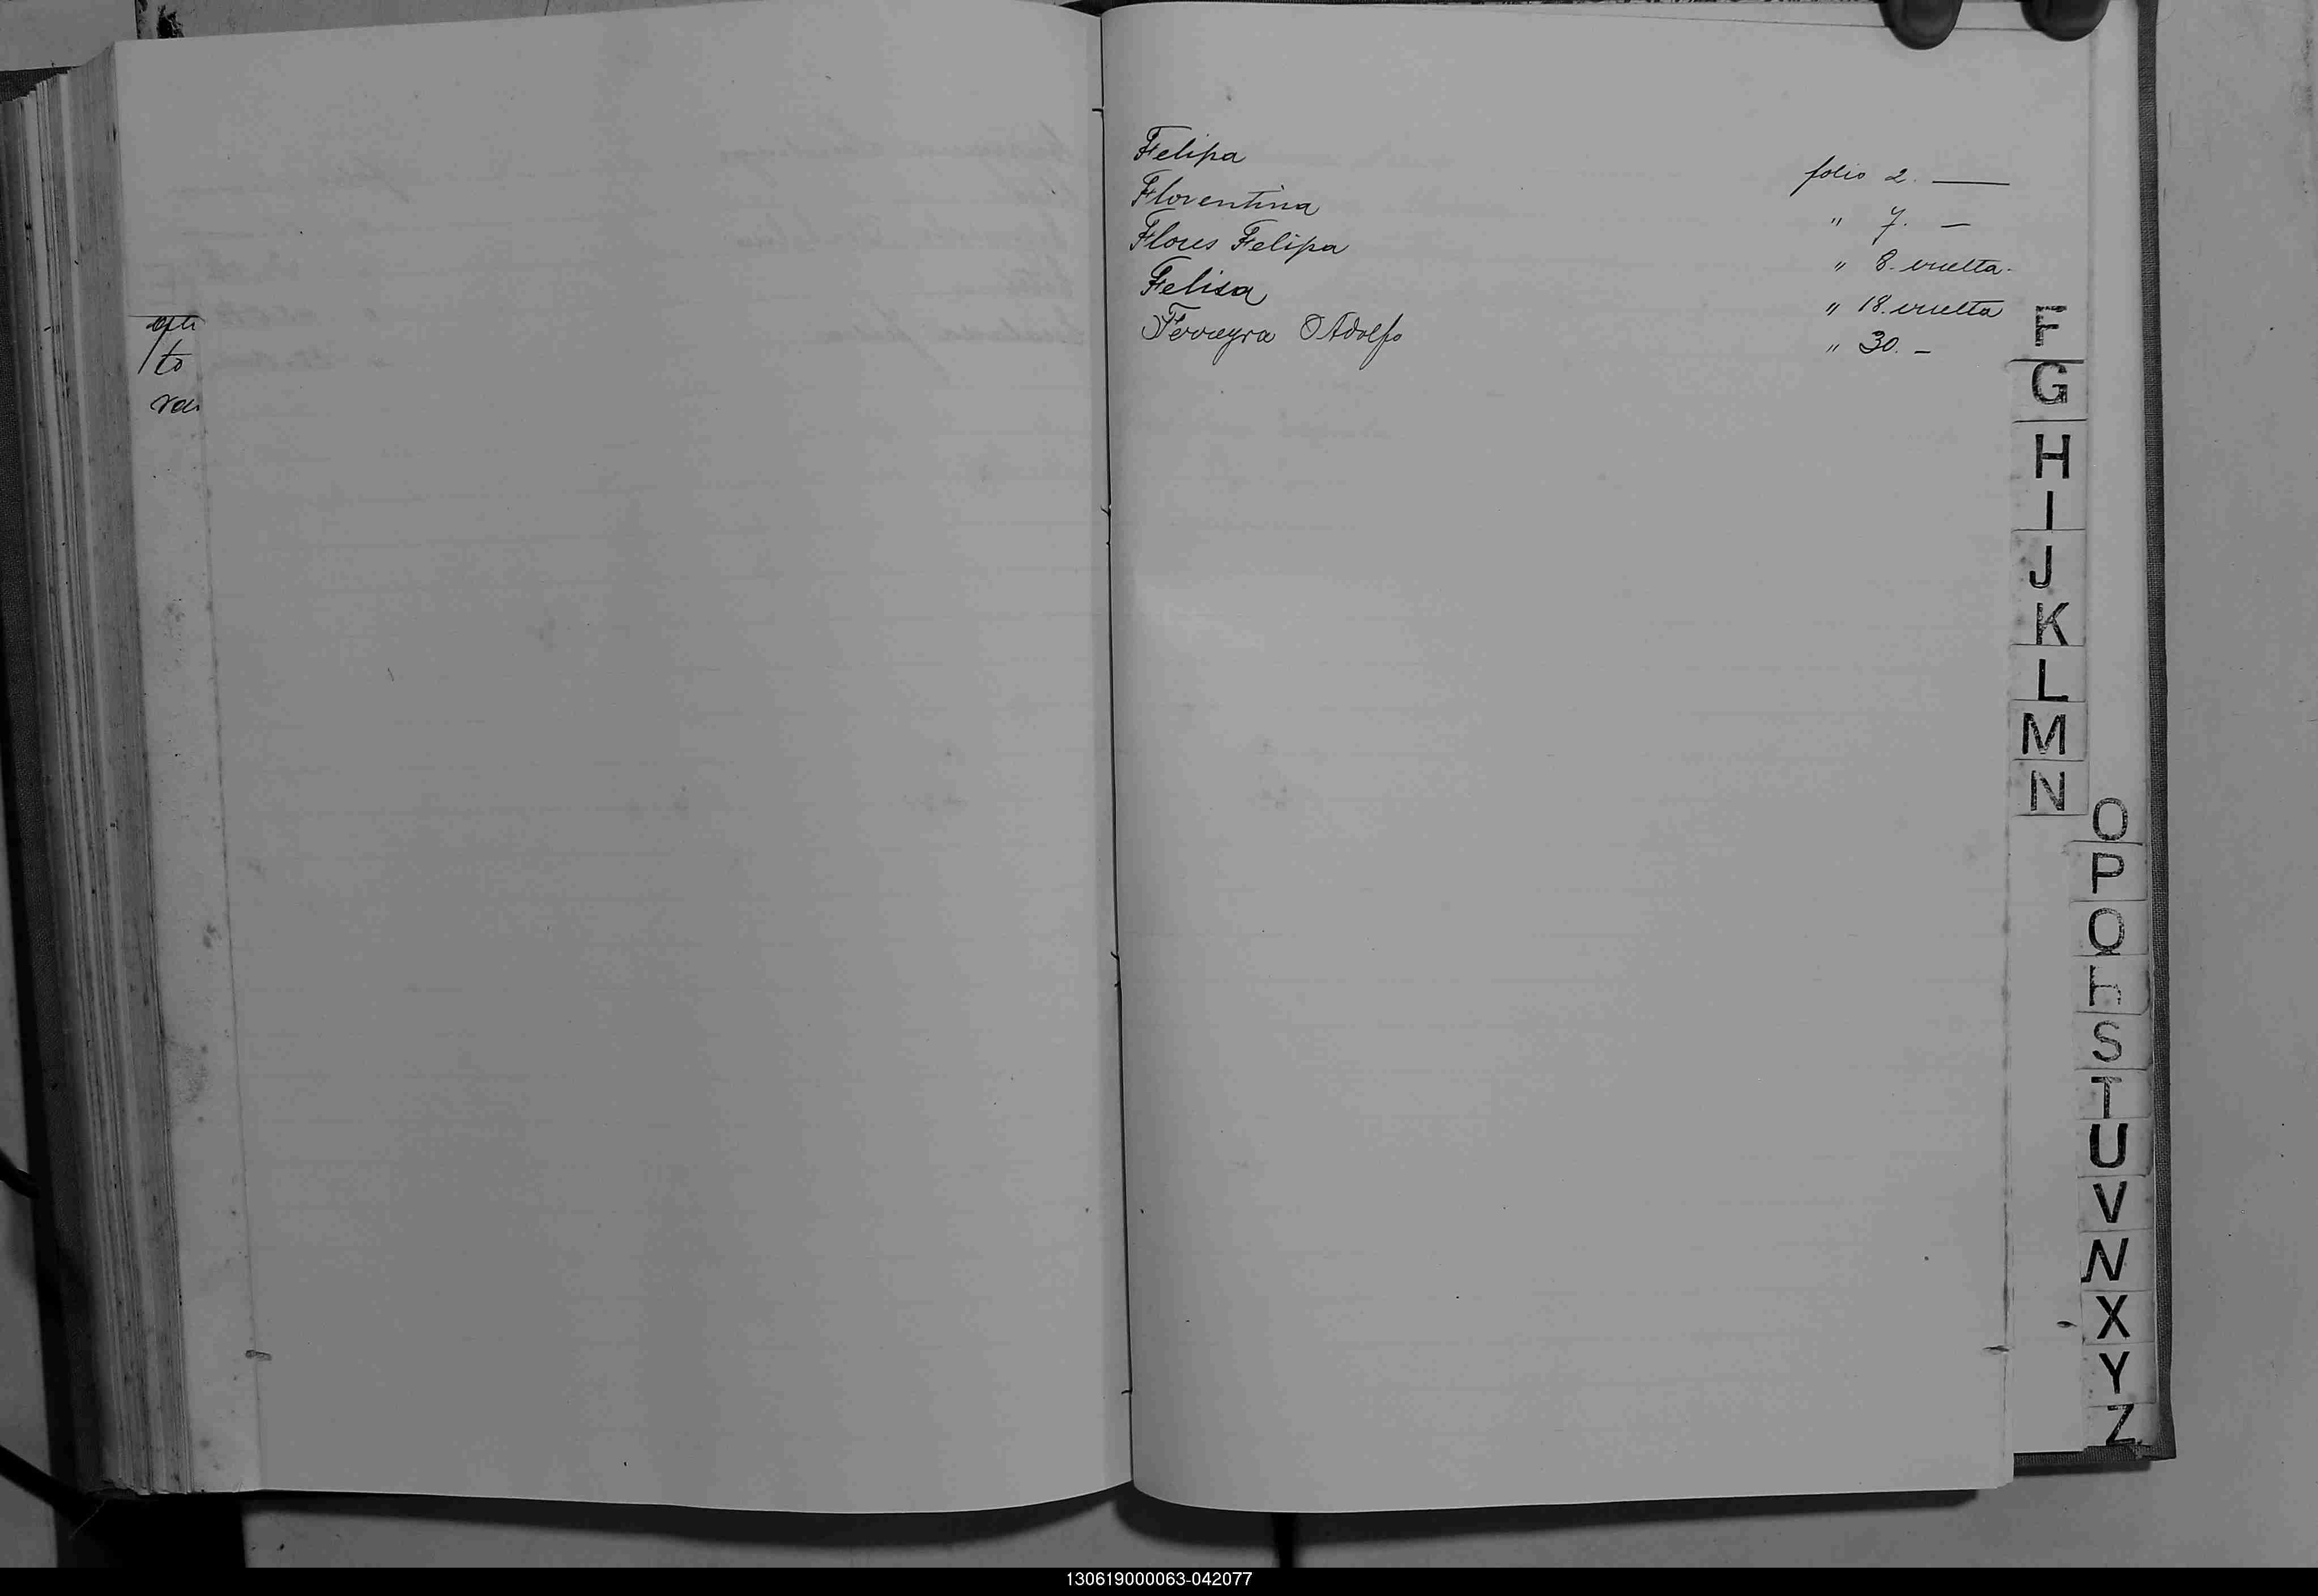 Felipa folio 2. —
Florentina " 7. —
Flores Felipa " 8. vuelta.
Felisa " 18. vuelta
Ferreyra Adolfo " 30. —
to
F
G
H
I
J
K
L
M
N
O
P
Q
R
S
T
U
V
X
Y
Z
130619000063-042077